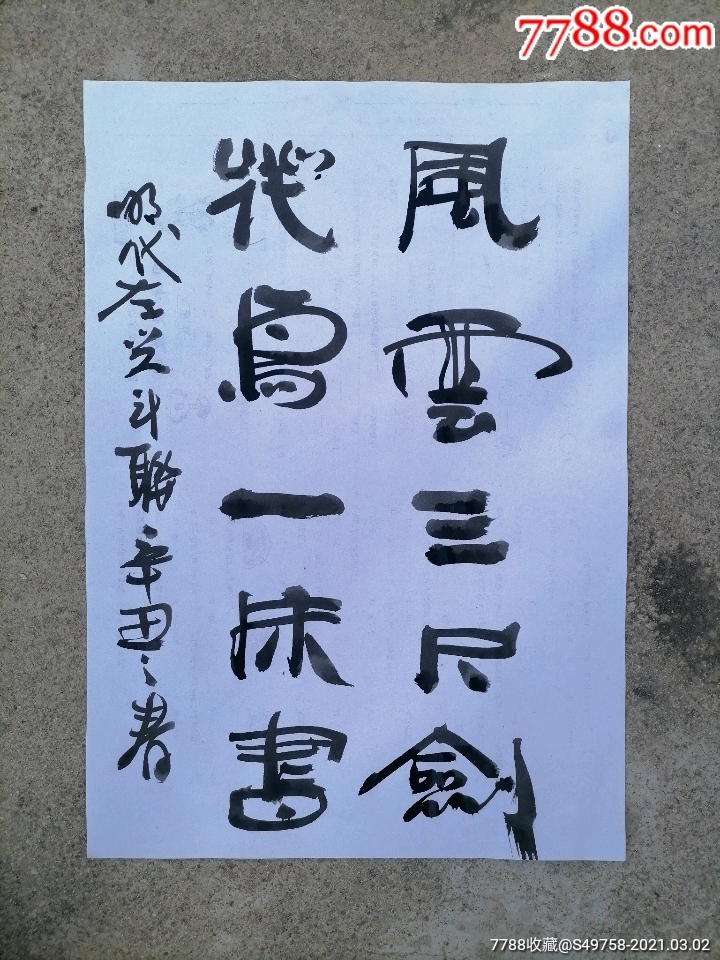 7788.com
風雲三尺劍
花鳥一床書
明代左光斗聯辛丑書
7788收藏@S49758-2021.03.02